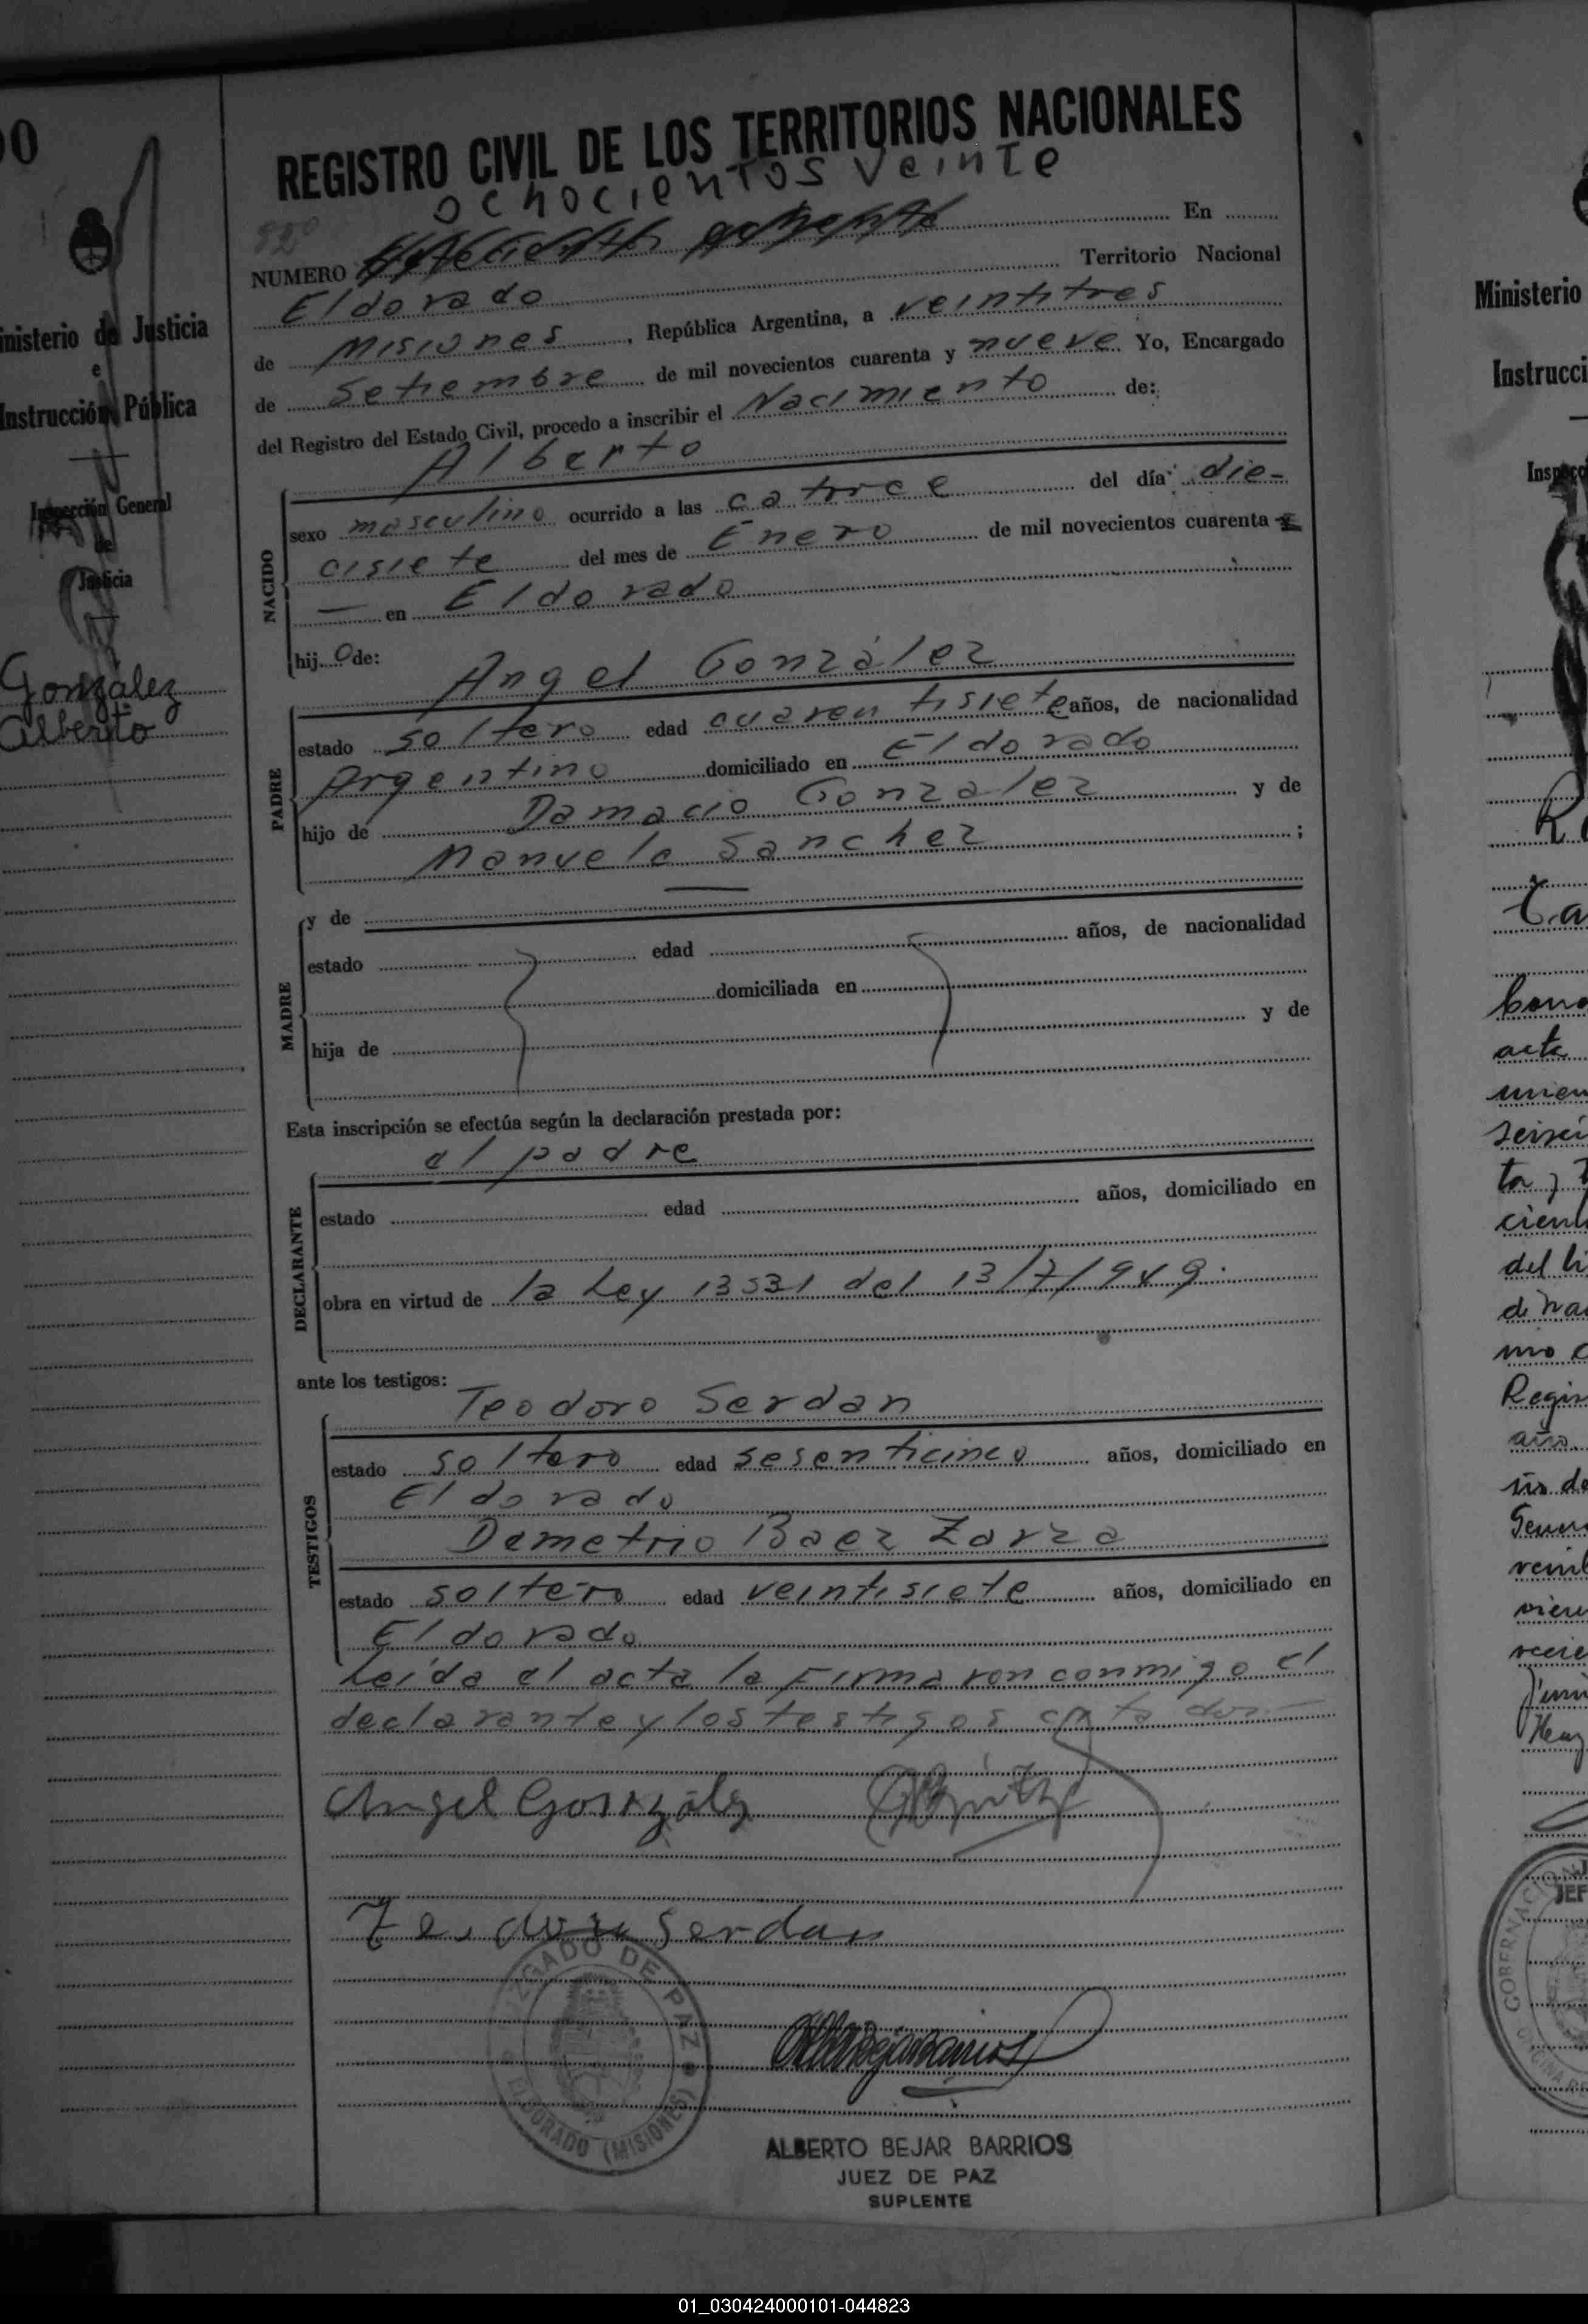 REGISTRO CIVIL DE LOS TERRITORIOS NACIONALES
ochocientos veinte
820
NUMERO En
Eldorado Territorio Nacional
de Misiones, República Argentina, a veintitres
de Setiembre de mil novecientos cuarenta y nueve Yo, Encargado
del Registro del Estado Civil, procedo a inscribir el Nacimiento de:
NACIDO
Alberto
sexo masculino ocurrido a las catorce del día die-
cisiete del mes de Enero de mil novecientos cuarenta
— en Eldorado
hijo de:
PADRE
Angel González
estado soltero edad cuarentisiete años, de nacionalidad
Argentino domiciliado en Eldorado
hijo de Damacio Gonzalez y de
Manuela Sanchez ;
MADRE
y de —
estado edad años, de nacionalidad
domiciliada en
hija de y de
Esta inscripción se efectúa según la declaración prestada por:
DECLARANTE
el padre
estado edad años, domiciliado en
obra en virtud de la Ley 13531 del 13/7/949.
ante los testigos:
TESTIGOS
Teodoro Serdan
estado soltero edad sesenticinco años, domiciliado en
Eldorado
Demetrio Baez Zarza
estado soltero edad veintisiete años, domiciliado en
Eldorado
Leída el acta la Firmaron conmigo el
declarante y los testigos citados—
Angel González
Teodoro Serdan
JUZGADO DE PAZ
ELDORADO (MISIONES)
ALBERTO BEJAR BARRIOS
JUEZ DE PAZ
SUPLENTE
00
Ministerio de Justicia
e
Instrucción Pública
Inspección General
de
Justicia
González
Alberto
Ministerio
Instrucci
Inspec
acta
ta y
del li
Regis
año
GOBERNACION
JEF
01_030424000101-044823